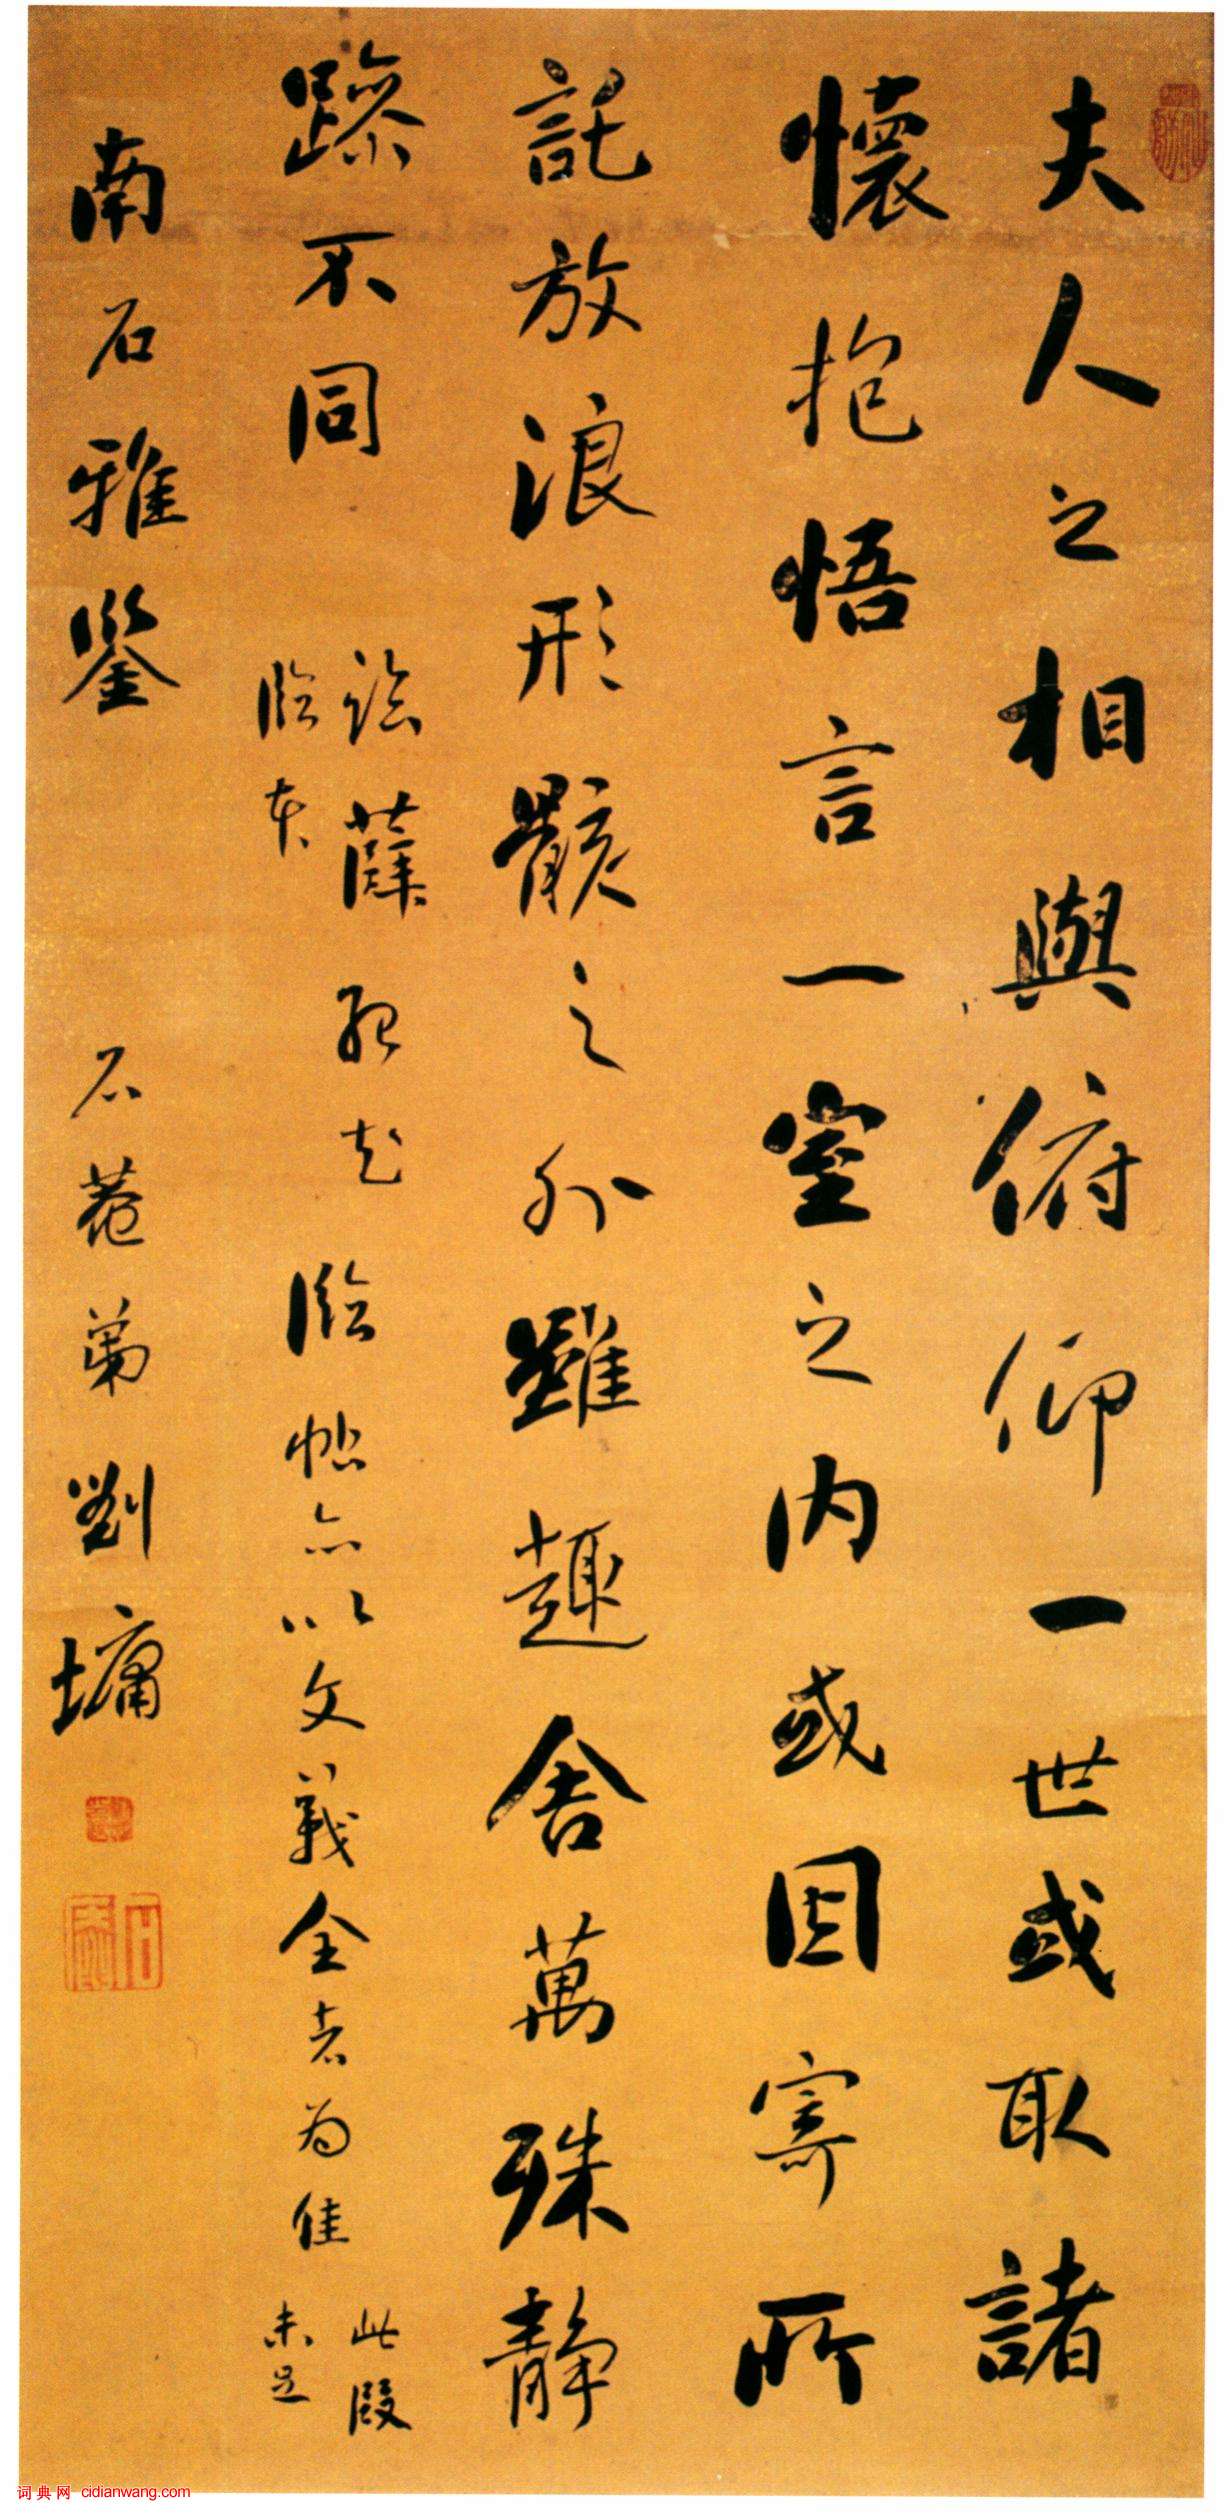 夫人之相與俯仰一世或取諸
懷抱悟言一室之内或因寄所
託放浪形骸之外雖趣舍萬殊静
躁不同
薛
臨本
臨帖亦以文義全者为佳
此段
未足
南石雅鑒 石菴弟劉墉
词典网 cidianwang.com